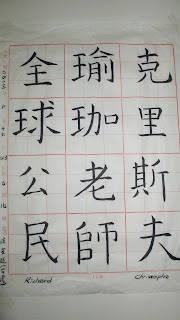 克里斯夫
瑜珈老師
全球公民
Richard